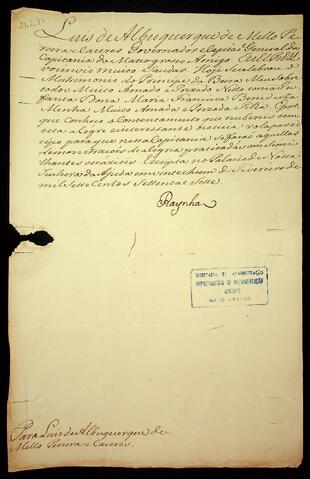 Luis de Albuquerque de Mello Pe-
reira e Caceres Governador e Capitaõ General da
Capitania do Matto grosso Amigo. Eu a Raynha
vos invio muito saudar. Hoje se celebrou o
Matrimonio do Principe da Beira Meu sobre
todos Muito Amado e Prezado Neto com a In-
fanta Dona Maria Francisca Benedicta
Minha Muito Amada e Prezada Filha. E por
que conheço o contentamento que recebereis com
esta alegre e interessante noticia vola parte-
cipo para que nessa Capitania se façaõ aquellas
demonstraçoẽs de alegria praticadas em simi-
lhantes occazioẽs. Escripta no Palacio de Nossa
Senhora da Ajuda em vinte e hum de Fevereiro de
mil sete centos settenta e sete.
Raynha
SECRETARIA DE ADMINISTRAÇÃO
DEPARTAMENTO DE DOCUMENTAÇÃO
E ARQUIVO
MATO GROSSO
Para Luis de Albuquerque de
Mello Pereira e Caceres.